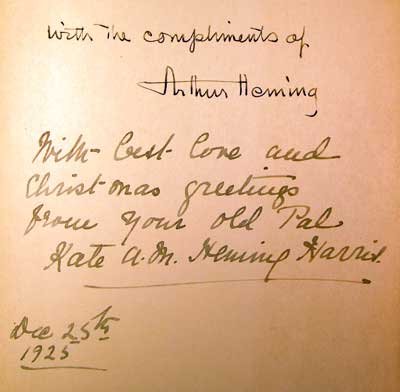 with the compliments of
Arthur Heming
With best love and
Christmas greetings
from your old Pal
Kate A. M. Heming Harris.
Dec 25th
1925